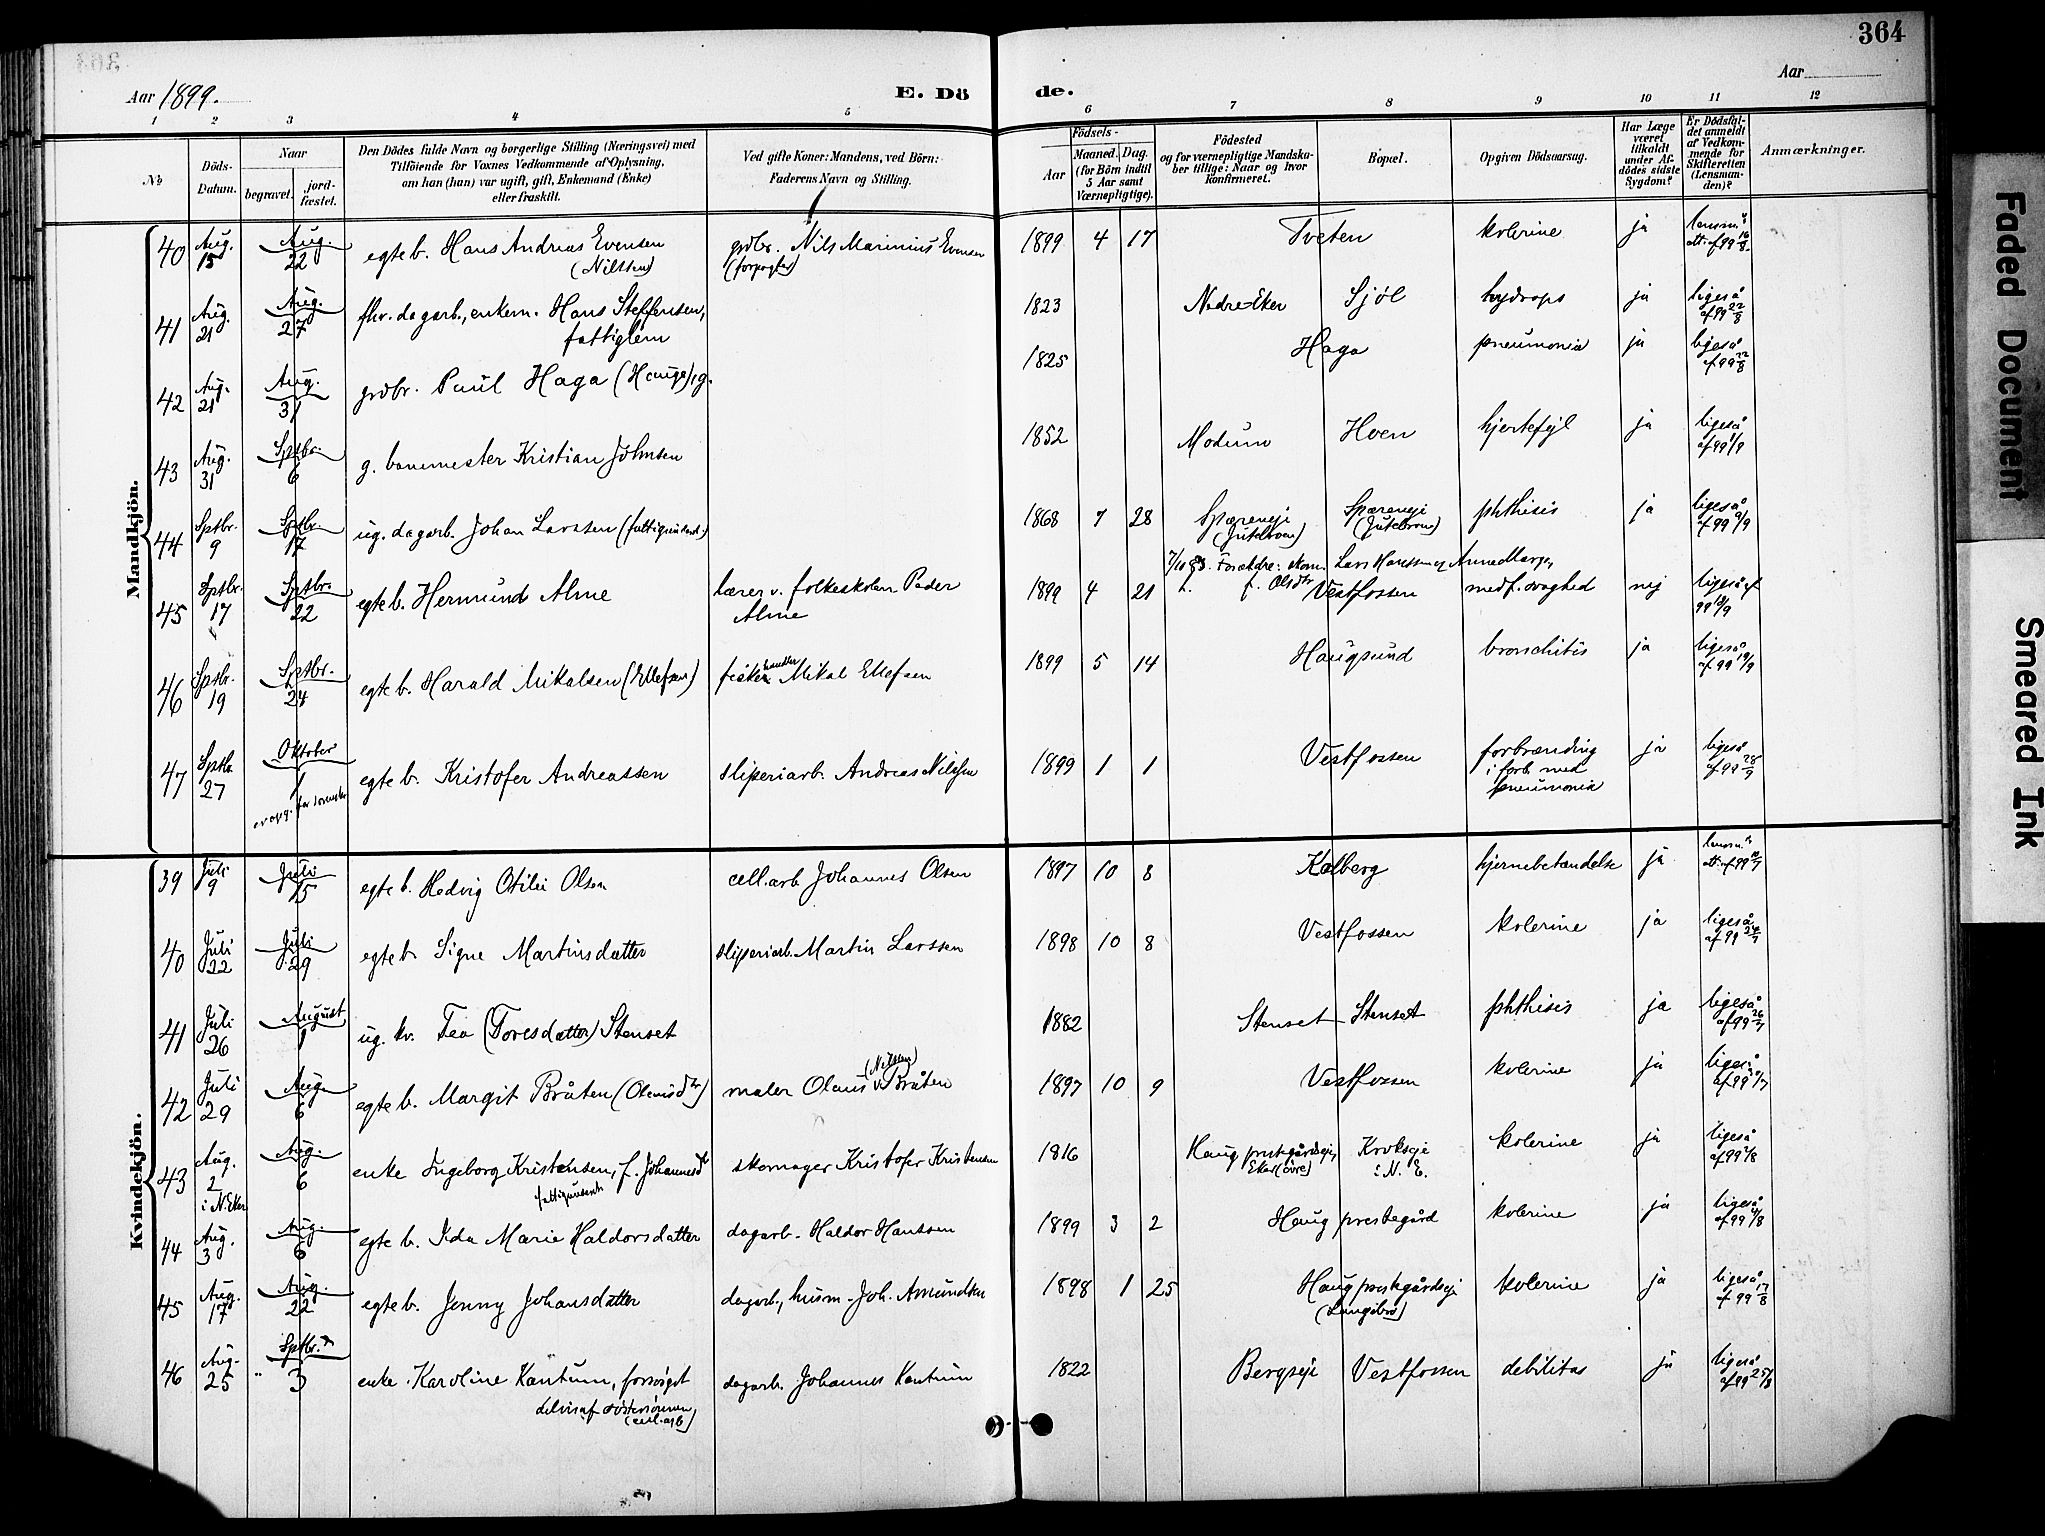 364
Aar 1899.
E. Dö
de.
Aar
1 2 3 4 5 6 7 8 9 10 11 12
№
Döds-Datum.
Naar
begravet.
jord-fæstet.
Den Dödes fulde Navn og borgerlige Stilling (Næringsvei) med
Tilföiende for Voxnes Vedkommende af Oplysning,
om han (hun) var ugift, gift, Enkemand (Enke)
eller fraskilt.
Ved gifte Koner: Mandens, ved Börn:
Faderens Navn og Stilling.
Födsels-
Aar
Maaned. Dag.
(for Börn indtil
5 Aar samt
Værnepligtige).
Födested
og for værnepligtige Mandska-
ber tillige: Naar og hvor
konfirmeret.
Bopæl.
Opgiven Dödsaarsag.
Har Læge
været
tilkaldt
under Af-
dødes sidste
Sygdom?
Er Dödsfal-
det anmeldt
af Vedkom-
mende for
Skifteretten
(Lensman-
den)?
Anmærkninger.
Mandkjön.
40 Aug. 15 Aug. 22 egte b. Hans Andreas Evensen (Nilssen) grdbr. Nils Marinius Evensen (forpagter) 1899 4 17 Tveten kolerine ja lensm.s att. af 99 16/8.
41 Aug. 21 Aug. 27 fhv. dagarb., enkem. Hans Steffensen, fattiglem 1823 Nedre-Eker Sjøl hydrops ja ligeså af 99 22/8
42 Aug. 21 Aug. 31 grdbr. Paul Haga (Hauge), g. 1825 Haga pneumonia ja ligeså af 99 22/8
43 Aug. 31 Sptbr. 6 g. banemester Kristian Johnsen 1852 Modum Hoen hjertefejl ja ligeså af 99 1/9
44 Sptbr. 9 Sptbr. 17 ug. dagarb. Johan Larssen (fattigunderst.) 1868 7 28 Spæreneje Spæreneje phthisis ja ligeså af 99 9/9
Forældre: Lars Hanssen og
45 Sptbr. 17 Sptbr. 22 egte b. Hermund Alme lærer v. folkeskolen Peder Alme 1899 4 21 Vestfossen medf. svaghed nej ligeså af 99 18/9
46 Sptbr. 19 Sptbr. 24 egte b. Harald Mikalsen (Ellefsen) fiskehandler Mikal Ellefsen 1899 5 14 Haugsund bronchitis ja ligeså af 99 19/9
47 Sptbr. 27 Oktober 1 egte b. Kristofer Andreassen sliperiarb. Andreas Nilssen 1899 1 1 Vestfossen forbrænding i forb. med pneumonia ja ligeså af 99 28/9
Kvindekjön.
39 Juli 9 Juli 15 egte b. Hedvig Otilie Olsen cell.arb. Johannes Olsen 1897 10 8 Kalberg hjernebetændelse ja lensm.s att. af 99
40 Juli 22 Juli 29 egte b. Signe Martinsdatter sliperiarb. Martin Larssen 1898 10 8 Vestfossen kolerine ja ligeså af 99 24/7
41 Juli 26 August 1 ug. kv. Tea (Toresdatter) Stenset 1882 Stenset Stenset phthisis ja ligeså af 99 26/7
42 Juli 29 Aug. 6 egte b. Margit Bråten (Olausdtr) maler Olaus (Nilssen) Bråten 1897 10 9 Vestfossen kolerine ja ligeså af 99 /7
43 Aug. 2 i N. Eker Aug. 6 enke Ingeborg Kristensen, f. Johannesdtr fattigunderst. skomager Kristofer Kristensen 1816 Haug prestegårdseje, Eker (øvre) Krokseje i N. E. kolerine ja ligeså af 99 /8
44 Aug. 3 Aug. 6 egte b. Ida Marie Haldorsdatter dagarb. Haldor Hanssen 1899 3 2 Haug prestegård kolerine ja ligeså af 99 4/8
45 Aug. 17 Aug. 22 egte b. Jenny Johansdatter dagarb., husm. Joh. Amundsen 1898 1 25 Haug prestegårdseje (Langebro) kolerine ja ligeså af 99 17/8
46 Aug. 25 Sptbr. 3 enke Karoline Kantum, forsørget delvis af søstersønnen (cell.arb) dagarb. Johannes Kantum 1822 Bergseje Vestfossen debilitas ja ligeså af 99 25/8
Faded Document
Smeared Ink